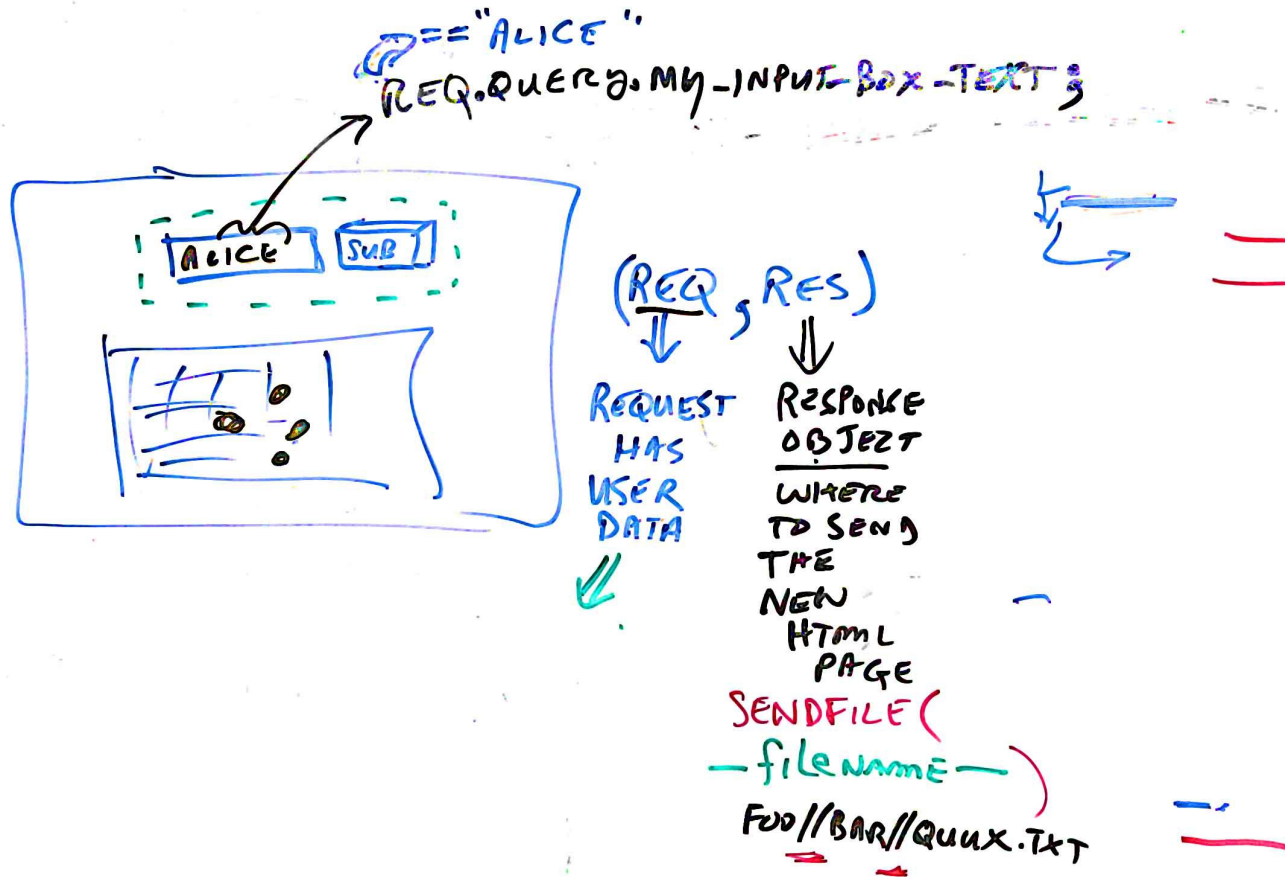 =="ALICE"
REQ.QUERY.MY_INPUT_BOX_TEXT;
ALICE
SUB
(REQ, RES)
REQUEST
HAS
USER
DATA
RESPONSE
OBJECT
WHERE
TO SEND
THE
NEW
HTML
PAGE
SENDFILE(
—filename— )
FOO//BAR//QUUX.TXT